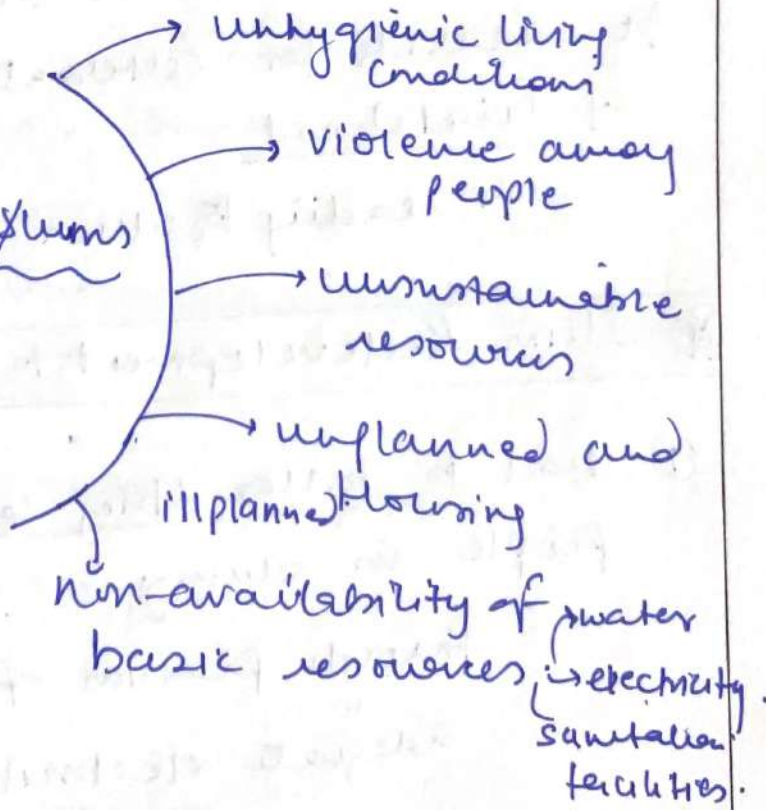 unhygienic living
conditions
violence among
people
Slums
unsustainable
resources
unplanned and
illplanned Housing
non-availability of water
basic resources electricity.
sanitation
facilities.